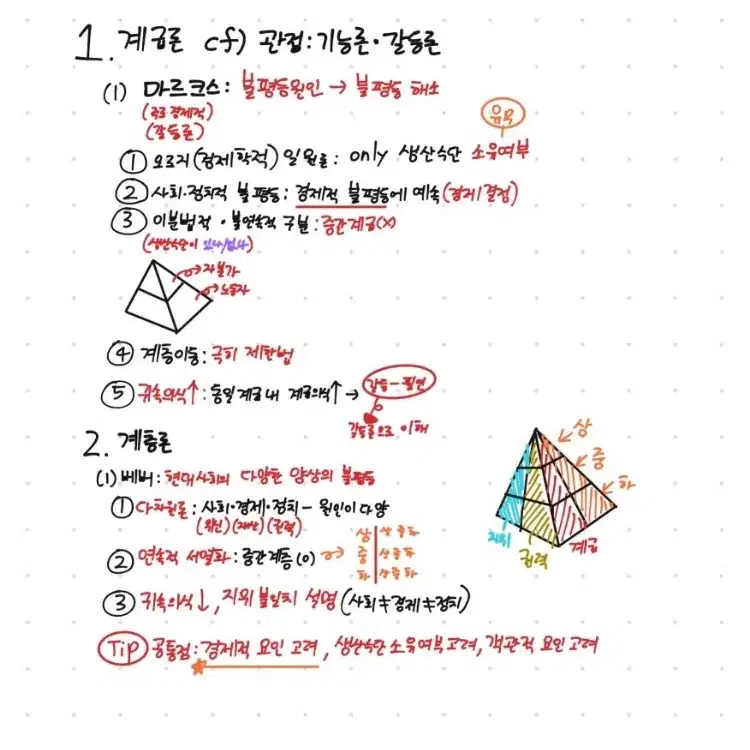 1. 계급론 cf) 관점: 기능론·갈등론
(1) 마르크스: 불평등원인 → 불평등 해소
(갈등론)
유무
① 오로지(경제학적) 일원론: only 생산수단 소유여부
② 사회·정치적 불평등: 경제적 불평등에 예속(경제결정)
③ 이분법적·불연속적 구분: 중간계급(X)
(생산수단이 있냐/없냐)
→자본가
→노동자
④ 계층이동: 극히 제한법
⑤ 귀속의식↑: 동일계급 내 계급의식↑ → 갈등-필연
갈등론으로 이해
2. 계층론
(1) 베버: 현대사회의 다양한 양상의 불평등
① 다차원론: 사회·경제·정치 - 원인이 다양
(위신)(재산)(권력)
② 연속적 서열화: 중간계층(O) →
상 상중하
중 상중하
하 상중하
상
중
하
지위
권력
계급
③ 귀속의식↓, 지위 불일치 설명 (사회≠경제≠정치)
Tip 공통점: 경제적 요인 고려, 생산수단 소유여부 고려, 객관적 요인 고려